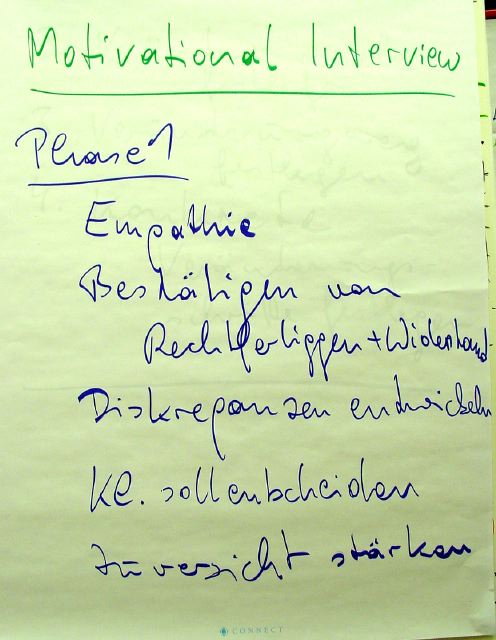 Motivational Interview
Phase 1
Empathie
Bestätigen von
Rechtfertiggen + Widerstand
Diskrepanzen entwickeln
Kl. soll entscheiden
Zuversicht stärken
CONNECT